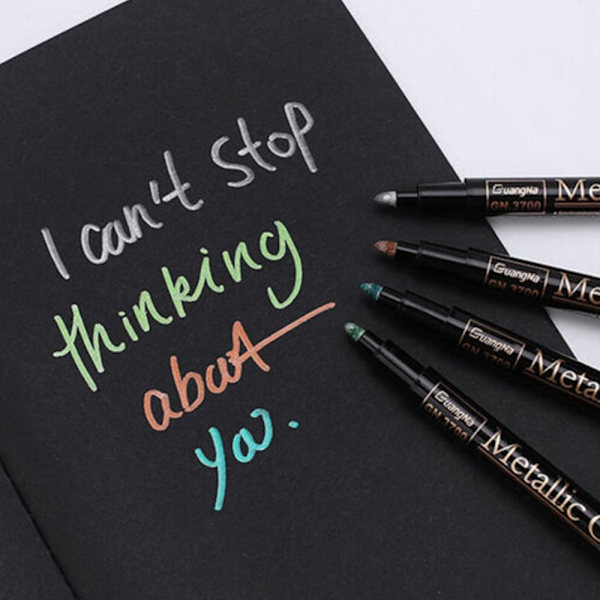 I can't Stop
thinking
about
you.
GuangNa
GN 3700
Me
GuangNa
GN 3700
Me
GuangNa
GN 3700
Meta
GuangNa
GN 3700
Metallic